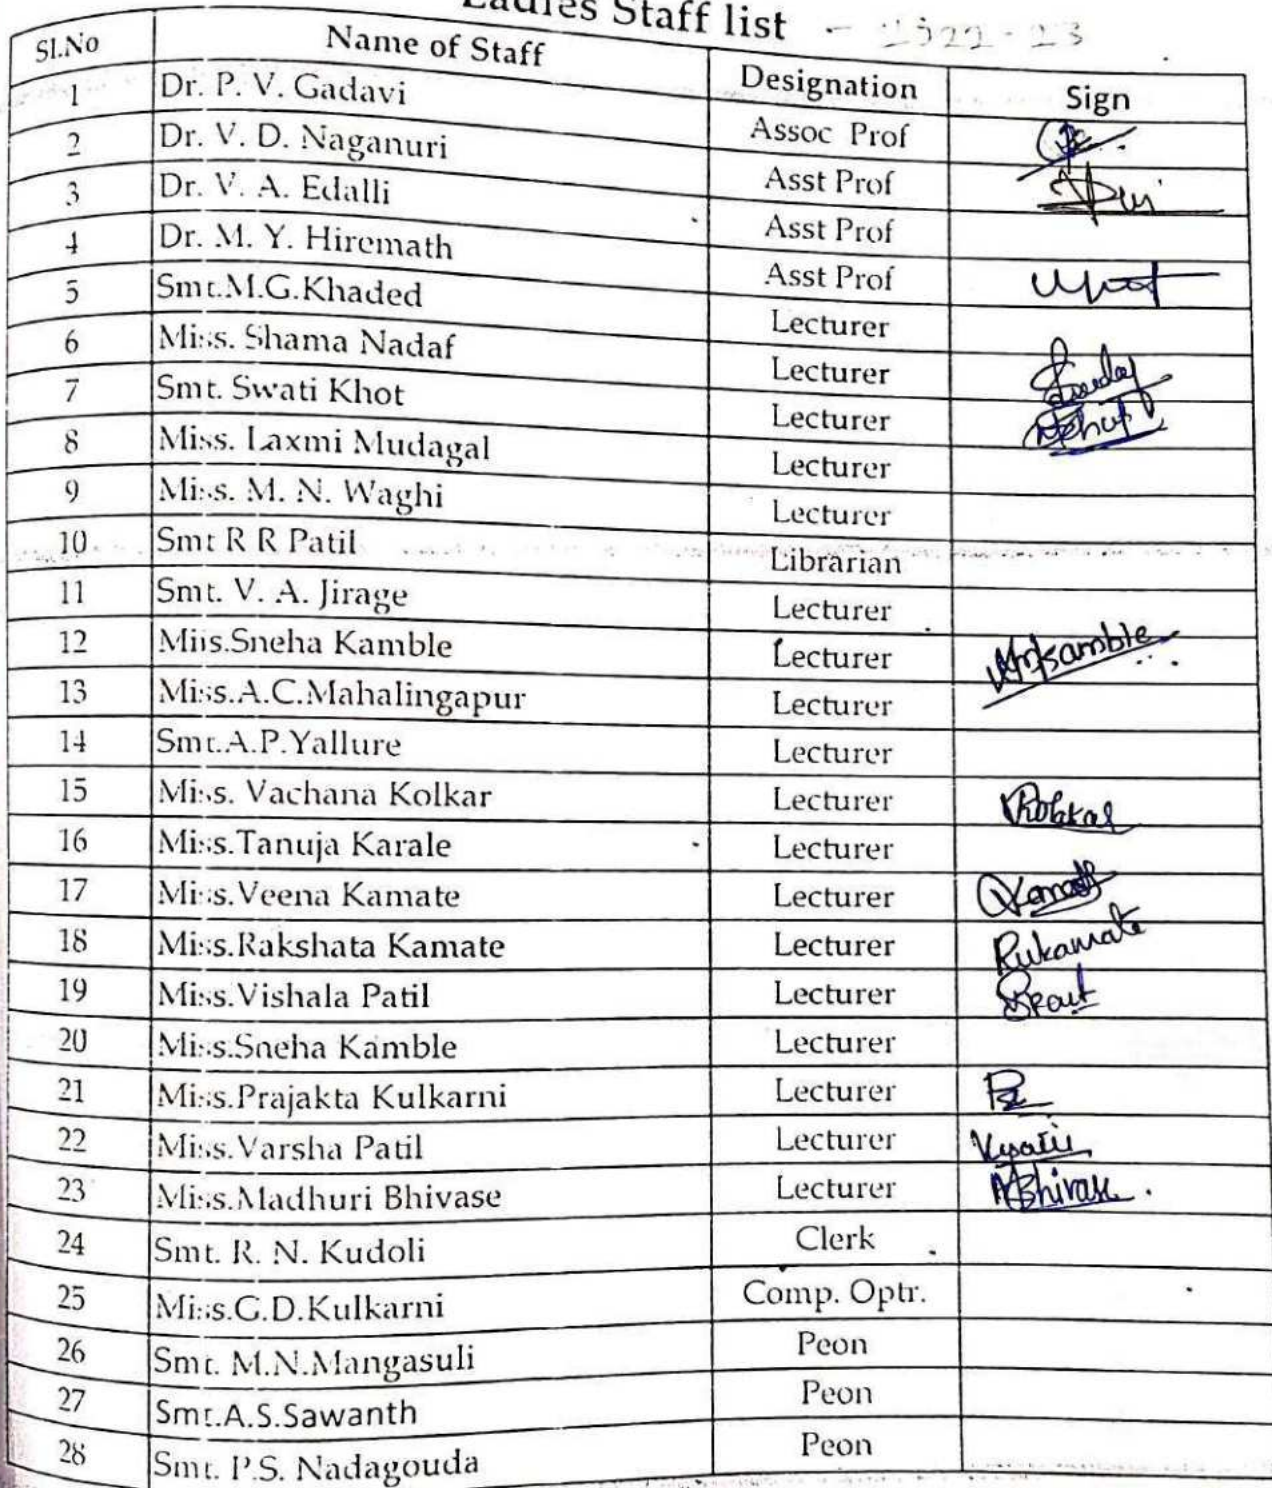 Ladies Staff list - 2022-23
Sl.No Name of Staff Designation Sign
1 Dr. P. V. Gadavi Assoc Prof
2 Dr. V. D. Naganuri Asst Prof
3 Dr. V. A. Edalli Asst Prof
4 Dr. M. Y. Hiremath Asst Prof
5 Smt.M.G.Khaded Lecturer
6 Miss. Shama Nadaf Lecturer
7 Smt. Swati Khot Lecturer
8 Miss. Laxmi Mudagal Lecturer
9 Miss. M. N. Waghi Lecturer
10 Smt R R Patil Librarian
11 Smt. V. A. Jirage Lecturer
12 Miis.Sneha Kamble Lecturer
13 Miss.A.C.Mahalingapur Lecturer
14 Smt.A.P.Yallure Lecturer
15 Miss. Vachana Kolkar Lecturer
16 Miss.Tanuja Karale Lecturer
17 Miss.Veena Kamate Lecturer
18 Miss.Rakshata Kamate Lecturer Rukamate
19 Miss.Vishala Patil Lecturer
20 Miss.Sneha Kamble Lecturer
21 Miss.Prajakta Kulkarni Lecturer
22 Miss.Varsha Patil Lecturer
23 Miss.Madhuri Bhivase Lecturer
24 Smt. R. N. Kudoli Clerk
25 Miss.G.D.Kulkarni Comp. Optr.
26 Smt. M.N.Mangasuli Peon
27 Smt.A.S.Sawanth Peon
28 Smt. P.S. Nadagouda Peon